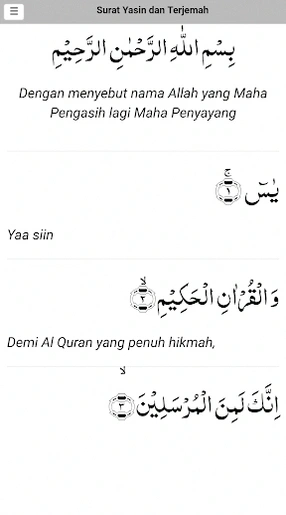 Surat Yasin dan Terjemah
بِسْمِ اللّٰهِ الرَّحْمٰنِ الرَّحِيْمِ
Dengan menyebut nama Allah yang Maha
Pengasih lagi Maha Penyayang
يٰسۤ ۚ ١
Yaa siin
وَالْقُرْاٰنِ الْحَكِيْمِۙ ٢
Demi Al Quran yang penuh hikmah,
اِنَّكَ لَمِنَ الْمُرْسَلِيْنَۙ ٣